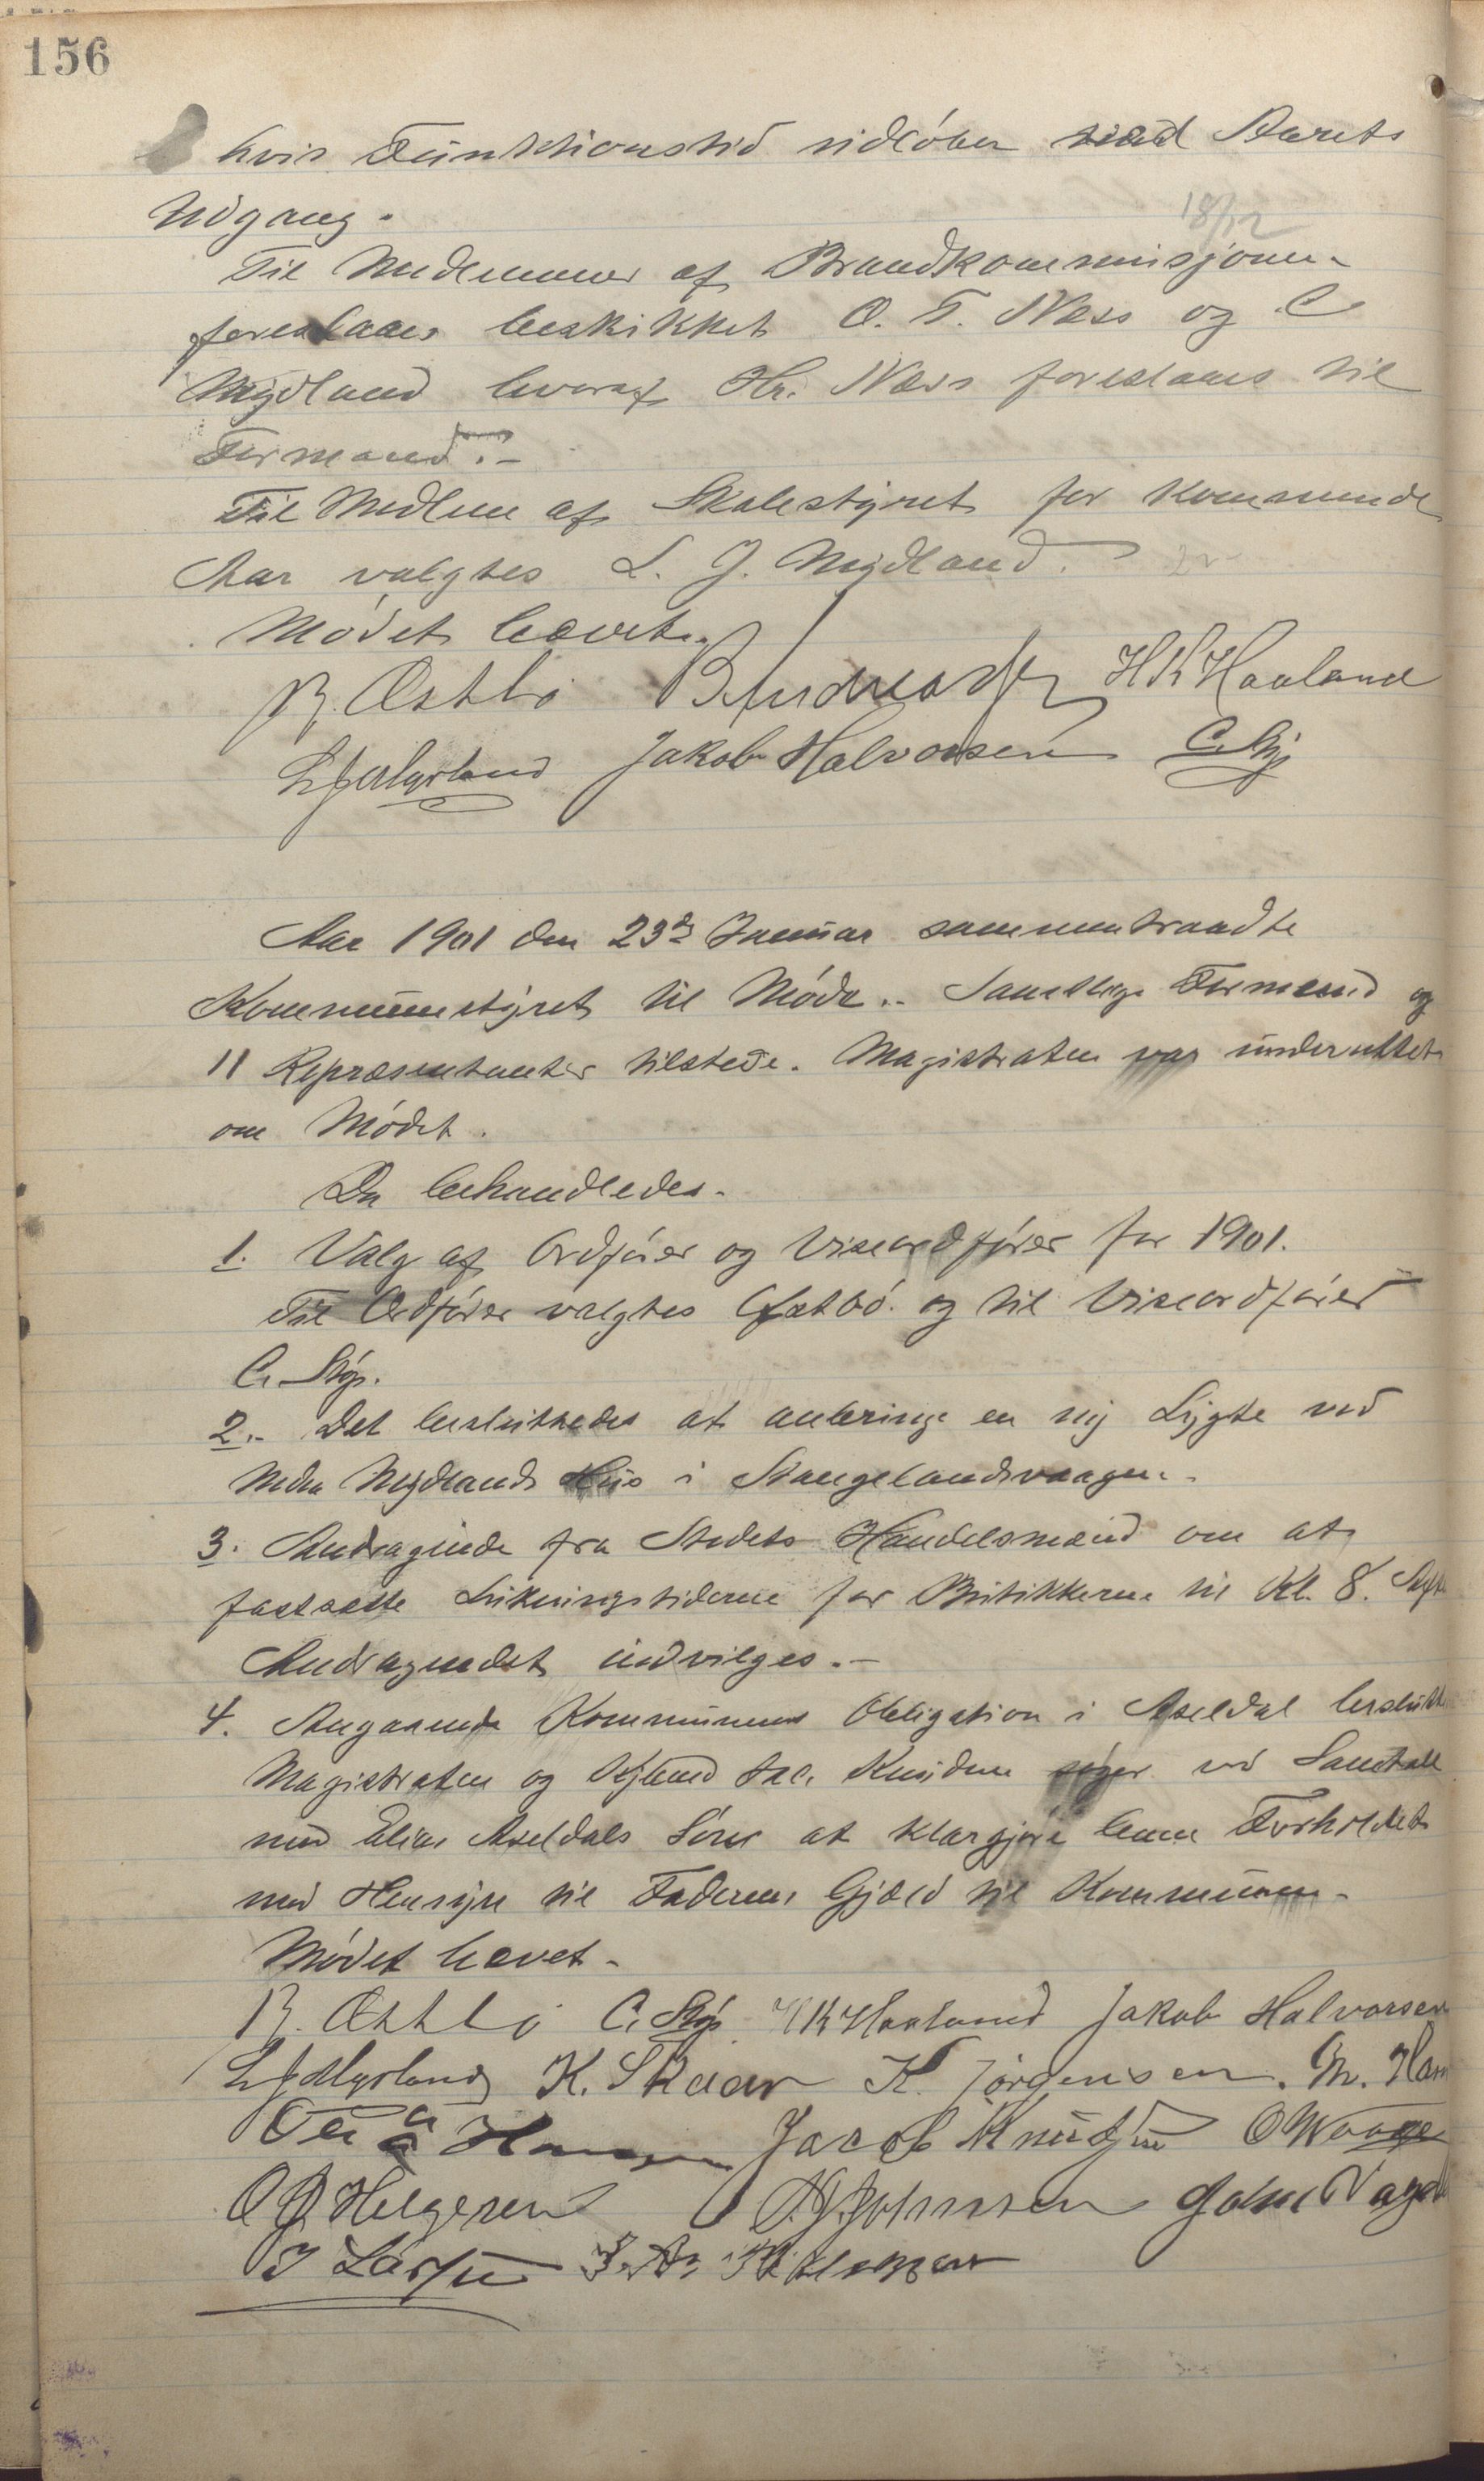 156
hvis Funktionstid udløber med Aarets
Udgang.
18/12
Til Medlemmer af Brandkommisjonen
foreslaaes beskikket O. T. Næss og C
Mydland hvoraf Hr. Næss foreslaaes til
Formand.-
Til Medlem af Skolestyret for kommende
Aar valgtes L. J. Mydland.
Mødet hævet.
R. Østbø B Andreassen H K Haaland
L J Mydland Jakob Halvorsen C. Støp
Aar 1901 den 23de Januar sammentraadte
Kommunestyret til Møde.- Samtlige Formænd og
11 Repræsentanter tilstede. Magistraten var underrettet
om Mødet.
Da behandledes.
1. Valg af Ordfører og Viseordfører for 1901.
Til Ordfører valgtes Østbø og til Viseordfører
C. Støp.
2.- Det besluttedes at anbringe en ny Lygte ved
Mydlands Hus i Stangelandsvaagen.-
3. Andragende fra Stedets Handelsmænd om at
fastsætte Lukningstiderne for Butikkerne til Kl. 8. Aft
Andragendet indvilges.-
4. Angaaende Kommunens Obligation i Axeldal beslutt
Magistraten og Jac. Knudsen søger ved Samtale
med Elias Axeldals Sønn at klargjøre ham Forholdet
med Hensyn til Faderens Gjæld til Kommunen.
Mødet hævet.
R. Østbø C. Støp H K Haaland Jakob Halvorsen
L J Mydland K. Skaar K. Jørgensen. M. Han
Hansen Jacob Knudsen O Waage
O J Helgesen A. J. Johnsen John Vaga
J Larsen